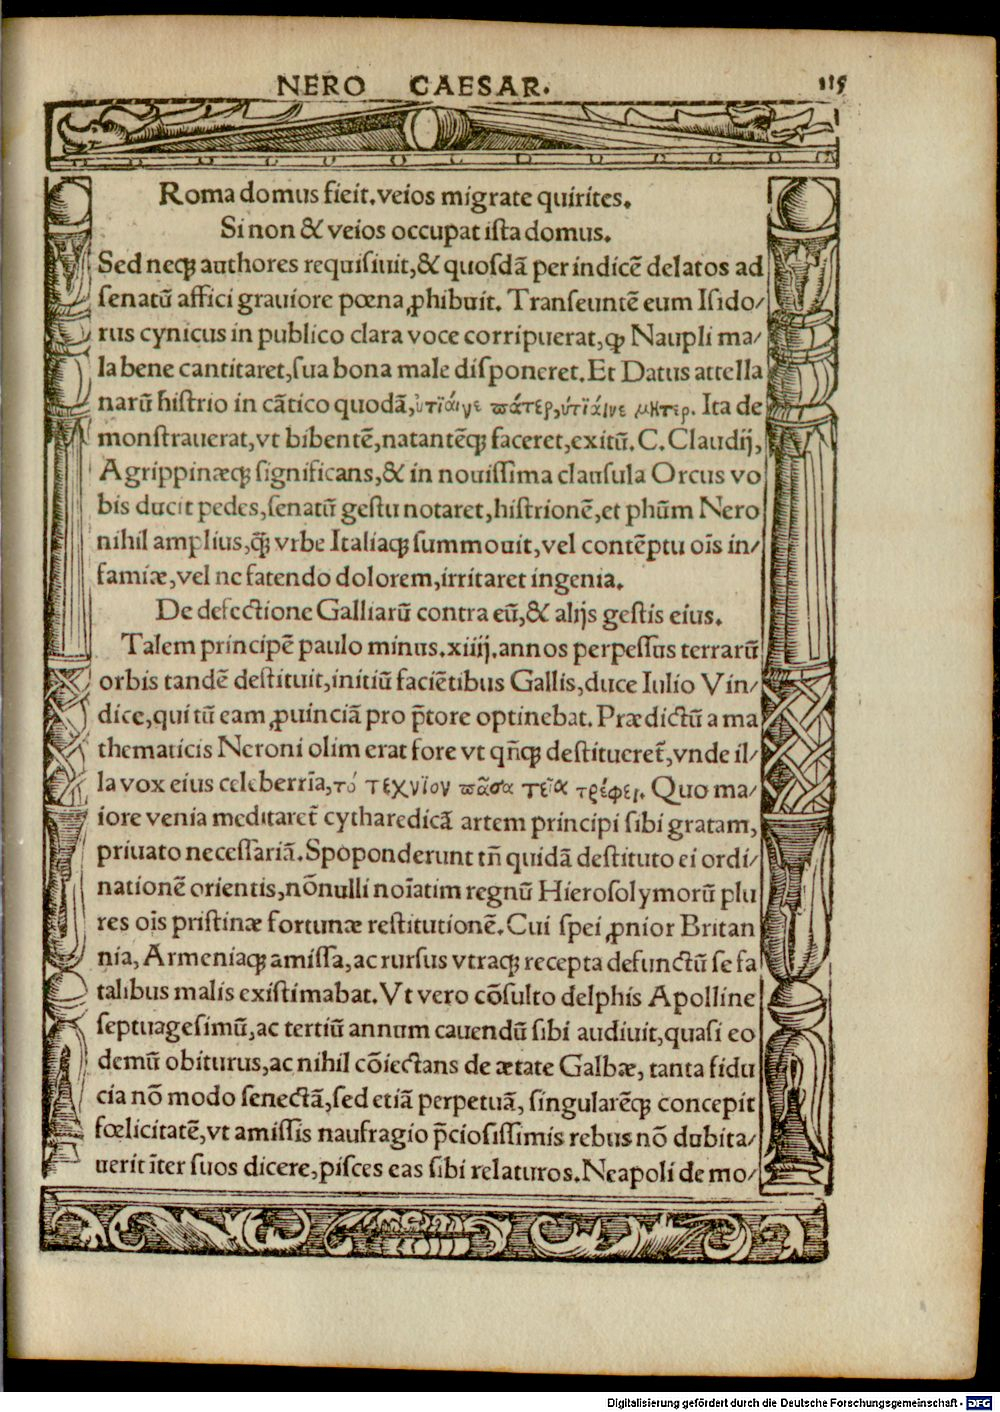 NERO CAESAR. 115
Roma domus fieit. veios migrate quirites.
Si non & veios occupat ista domus.
Sed neqꝫ authores requisiuit, & quosdã per indicẽ delatos ad
senatũ affici grauiore pœna ꝓhibuit. Transeuntẽ eum Isido/
rus cynicus in publico clara voce corripuerat, ꝙ Naupli ma/
la bene cantitaret, sua bona male disponeret. Et Datus attella
narũ histrio in cãtico quodã, ὑτἱαιγε πάτερ, ὑτίαινε μῆτερ. Ita de
monstrauerat, vt bibentẽ, natantẽqꝫ faceret, exitũ. C. Claudij,
Agrippinæqꝫ significans, & in nouissima clausula Orcus vo
bis ducit pedes, senatũ gestu notaret, histrionẽ, et phũm Nero
nihil amplius, q̃ꝫ vrbe Italiaqꝫ summouit, vel contẽptu oĩs in/
famiæ, vel ne fatendo dolorem, irritaret ingenia.
De defectione Galliarũ contra eũ, & alijs gestis eius.
Talem principẽ paulo minus. xiiij. annos perpessus terrarũ
orbis tandẽ destituit, initiũ faciẽtibus Gallis, duce Iulio Vin/
dice, qui tũ eam ꝓuinciã pro p̃tore optinebat. Prædictũ a ma
thematicis Neroni olim erat fore vt qñqꝫ destitueret̃, vnde il/
la vox eius celeberrĩa, τό τεχνῖον πᾶσα τεῖα τρέφει. Quo ma/
iore venia meditaret̃ cytharedicã artem principi sibi gratam,
priuato necessariã. Spoponderunt tñ quidã destituto ei ordi/
nationẽ orientis, nõnulli noĩatim regnũ Hierosolymorũ plu
res oĩs pristinæ fortunæ restitutionẽ. Cui spei ꝓnior Britan
nia, Armeniaqꝫ amissa, ac rursus vtraqꝫ recepta defunctũ se fa
talibus malis existimabat. Vt vero cõsulto delphis Apolline
septuagesimũ, ac tertiũ annum cauendũ sibi audiuit, quasi eo
demũ obiturus, ac nihil cõiectans de ætate Galbæ, tanta fidu
cia nõ modo senectã, sed etiã perpetuã, singularẽqꝫ concepit
fœlicitatẽ, vt amissis naufragio p̃ciosissimis rebus nõ dubita/
uerit ĩter suos dicere, pisces eas sibi relaturos. Neapoli de mo/
Digitalisierung gefördert durch die Deutsche Forschungsgemeinschaft - DFG